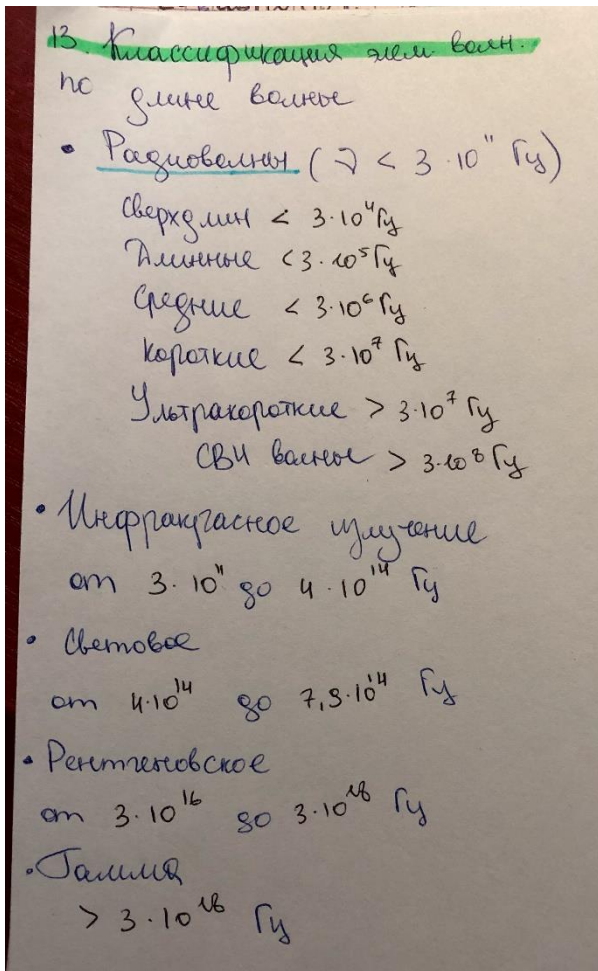 13. Классификация элем. волн.
по длине волны
• Радиоволны (ν < 3·10¹¹ Гц)
Сверхдлин < 3·10⁴ Гц
Длинные < 3·10⁵ Гц
Средние < 3·10⁶ Гц
Короткие < 3·10⁷ Гц
Ультракороткие > 3·10⁷ Гц
СВЧ волны > 3·10⁸ Гц
• Инфракрасное излучение
от 3·10¹¹ до 4·10¹⁴ Гц
• Световое
от 4·10¹⁴ до 7,9·10¹⁴ Гц
• Рентгеновское
от 3·10¹⁶ до 3·10¹⁸ Гц
• Гамма
> 3·10¹⁸ Гц